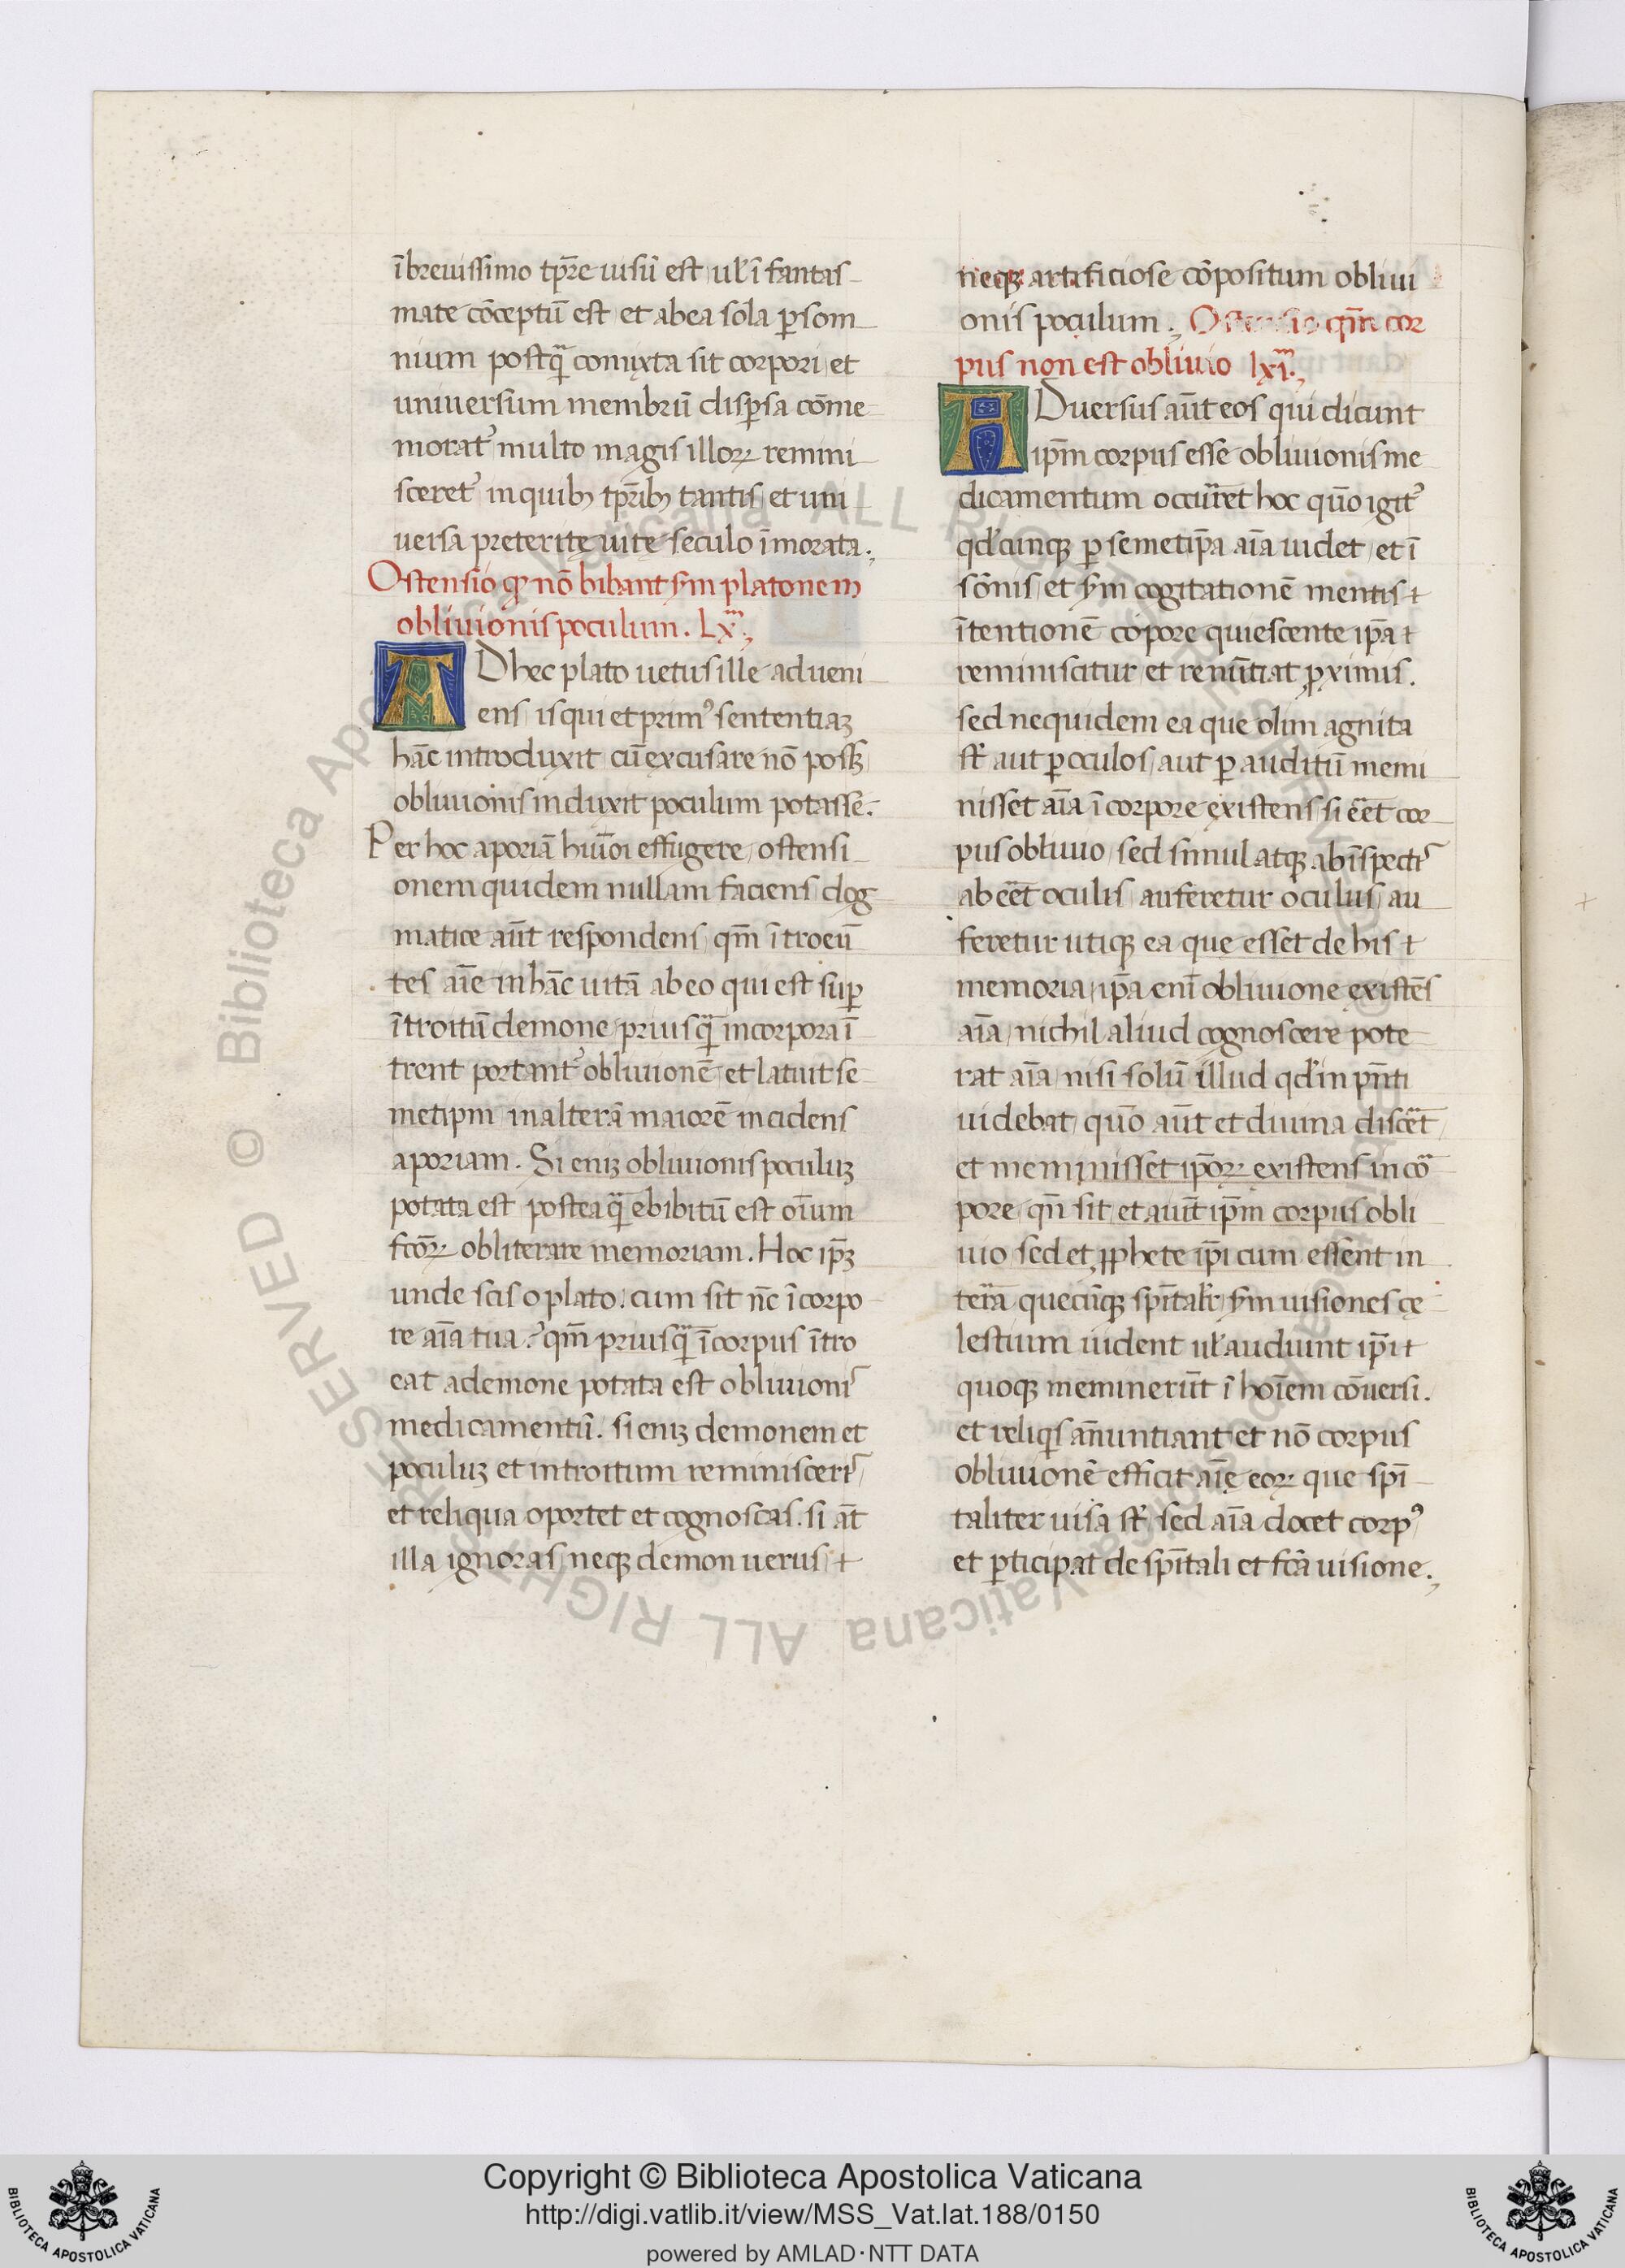 ībreuissimo tp̄re uisū est ul̄ ī fantas
mate cōceptū est et ab ea sola p̱ som
nium postq̄ comixta sit corpori et
uniuersum membrū disp̱sa cōme
morat᷒ multo magis illoꝝ remini
sceret᷒ in quibꝫ tp̄ribꝫ tantis et uni
uersa preteritę uite seculo īmorata.,
Ostensio ꝙ nō bibant sm̄ platonem
obliuionis poculum. Lxͫ.,
AD hec plato uetus ille adueni
ens is qui et prim᷒ sententiaꝫ
hāc introduxit cū excusare nō possꝫ
obliuionis induxit poculum potasse.
Per hoc aporiā hui᷒oi effugere ostensi
onem quidem nullam faciens dog
matice aūt respondens qm̄ ītroeū
tes aīe in hāc uitā ab eo qui est suꝑ
ītroitū demone priusq̄ in corpora ī
trent portant᷒ obliuionē et latuit se
metipm̄ in alterā maiorē incidens
aporiam. Si eniꝫ obliuionis poculuꝫ
potata est posteaq̄ ebibitū est oīum
fcōꝝ obliterare memoriam. Hoc ip̄ꝫ
unde scis o plato: cum sit nc̄ ī corpo
re aīa tua? qm̄ priusq̄ ī corpus ītro
eat a demone potata est obliuioni᷒
medicamentū. si eniꝫ demonem et
poculuꝫ et introitum reminisceri᷒
et reliqua oportet et cognoscas. si at̄
illa ignoras neqꝫ demon uerus ⁊
neqꝫ artificiose cōpositum obliui
onis poculum., Ostensio qm̄ cor
pus non est obliuio lxiͫ.,
ADuersus aūt eos qui dicunt
ip̄m corpus esse obliuionis me
dicamentum occurret hoc quō igit᷒
qd̄cunqꝫ ꝑ semetip̄a aīa uidet et ī
sōnis et sm̄ cogitationē mentis ⁊
ītentionē cōpore quiescente ip̄a ⁊
reminiscitur et renūtiat ꝓximis.
sed ne quidem ea que olim agnita
st̄ aut ꝑ oculos aut ꝑ auditū memi
nisset aīa ī corpore existens si eēt cor
pus obliuio sed simul atqꝫ ab īspecti᷒
ab eēt oculis auferetur oculus au
feretur utiqꝫ ea que esset de his ⁊
memoria ip̄a enī obliuione existēs
aīa nichil aliud cognoscere pote
rat aīa nisi solū illud qd̄ in pn̄ti
uidebat quō aūt et diuina discēt
et meminisset ip̄oꝝ existens in cō
pore qn̄ sit et aiūt ip̄m corpus obli
uio sed et ꝓphete ip̄i cum essent in
terra quecūqꝫ spītalr̄ sm̄ uisiones cę
lestium uident ul̄ audiunt ip̄i ⁊
quoqꝫ meminerūt ī hoīem cōuersi.
et reliqs̄ ānuntiant et nō corpus
obliuionē efficit aīę eoꝝ que spī
taliter uisa st̄ sed aīa docet corp᷒
et ꝑticipat de spītali et fcā uisione.,
Copyright © Biblioteca Apostolica Vaticana
http://digi.vatlib.it/view/MSS_Vat.lat.188/0150
powered by AMLAD·NTT DATA
BIBLIOTECA APOSTOLICA VATICANA
BIBLIOTECA APOSTOLICA VATICANA
© Biblioteca Apostolica Vaticana ALL RIGHTS RESERVED